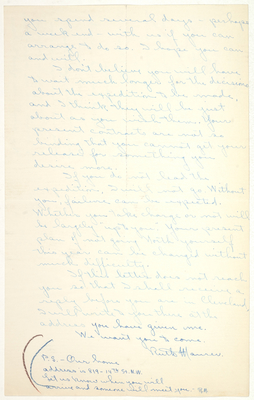 you spend several days - perhaps
a week end - with us if you can
arrange to do so. I hope you can
and will.
I don't believe you will have
to wait much longer for the decision
about the expedition to be made,
and I think they will be just
about as you will them. Your
present contracts are not so
binding that you cannot get your
release for something you
desire more.
If you do not head the
expedition, I will not go. Without
you failure can be expected.
Whether you like change or not will
be largely up to you. Your present
plan of not going North yourself
this year can be changed without
much difficulty.
If this letter does not reach
you so that I shall receive a
reply before you are in Cleveland,
I will write to you there at the
address you have given me.
We want you to come.
P.S. - Our home
address is 819 - 15th St. N.W.
Let us know when you will
arrive and someone will meet you.